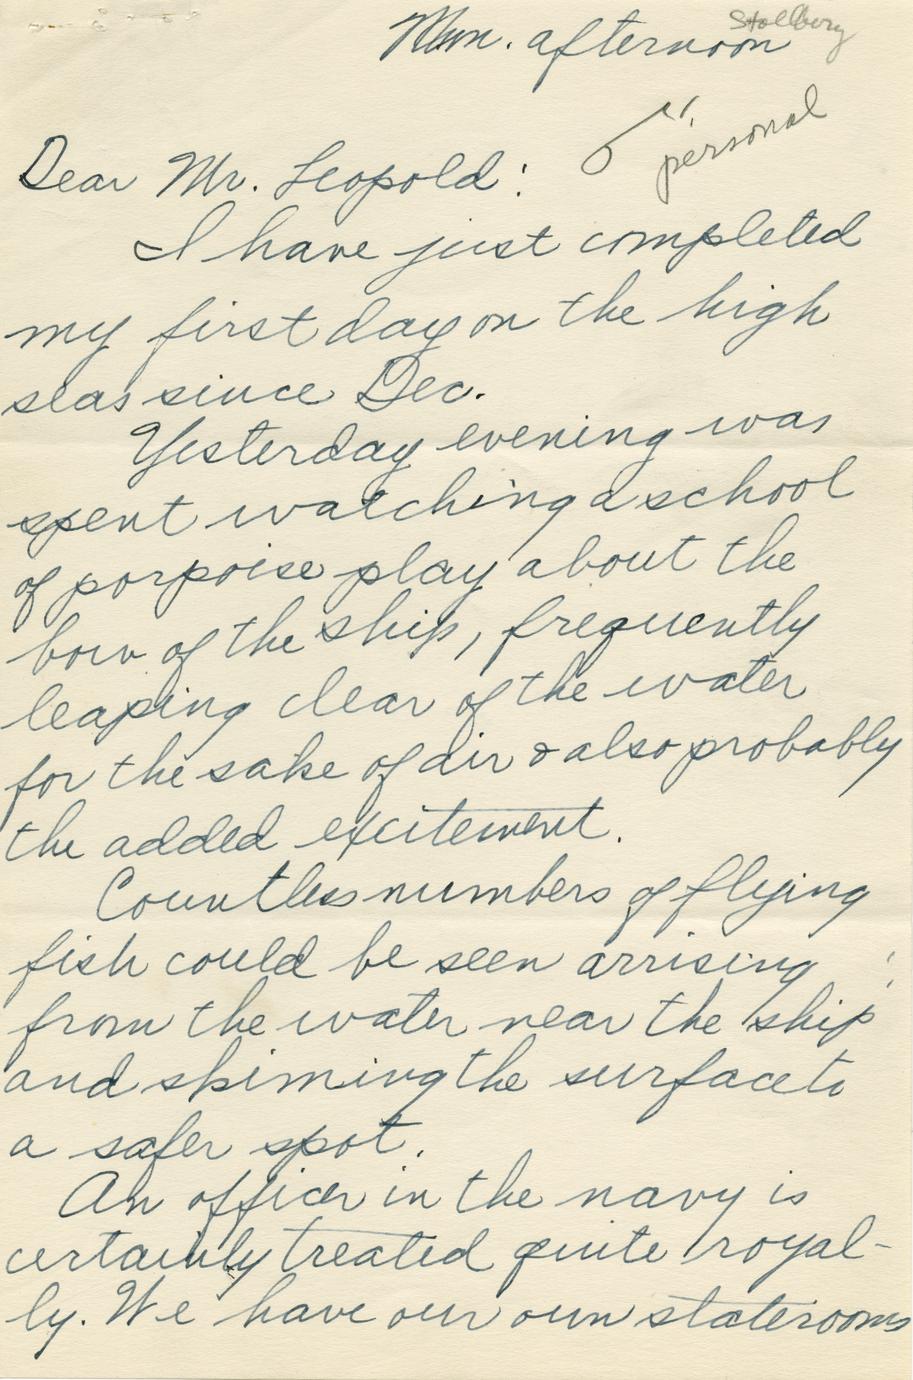 Stollberg
Mon. afternoon
personal
Dear Mr. Leopold:
I have just completed
my first day on the high
seas since Dec.
Yesterday evening was
spent watching a school
of porpoise play about the
bow of the ship, frequently
leaping clear of the water
for the sake of air & also probably
the added excitement.
Countless numbers of flying
fish could be seen arrising
from the water near the ship
and skiming the surface to
a safer spot.
An officer in the navy is
certainly treated quite royal-
ly. We have our own staterooms